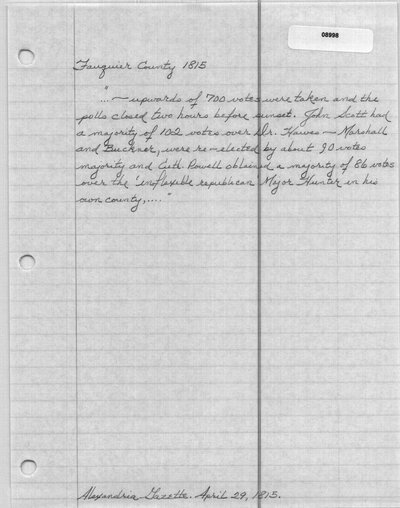 08998
Fauquier County 1815
"... — upwards of 700 votes were taken and the
polls closed two hours before sunset. John Scott had
a majority of 102 votes over Dr. Hawes — Marshall
and Buckner, were re-elected by about 90 votes
majority and Cuth. Powell obtained a majority of 86 votes
over the 'inflexible republican Major Hunter in his
own county,...."
Alexandria Gazette. April 29, 1815.